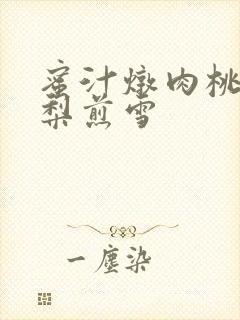 蜜汁燉肉桃
梨煎雪
一塵染